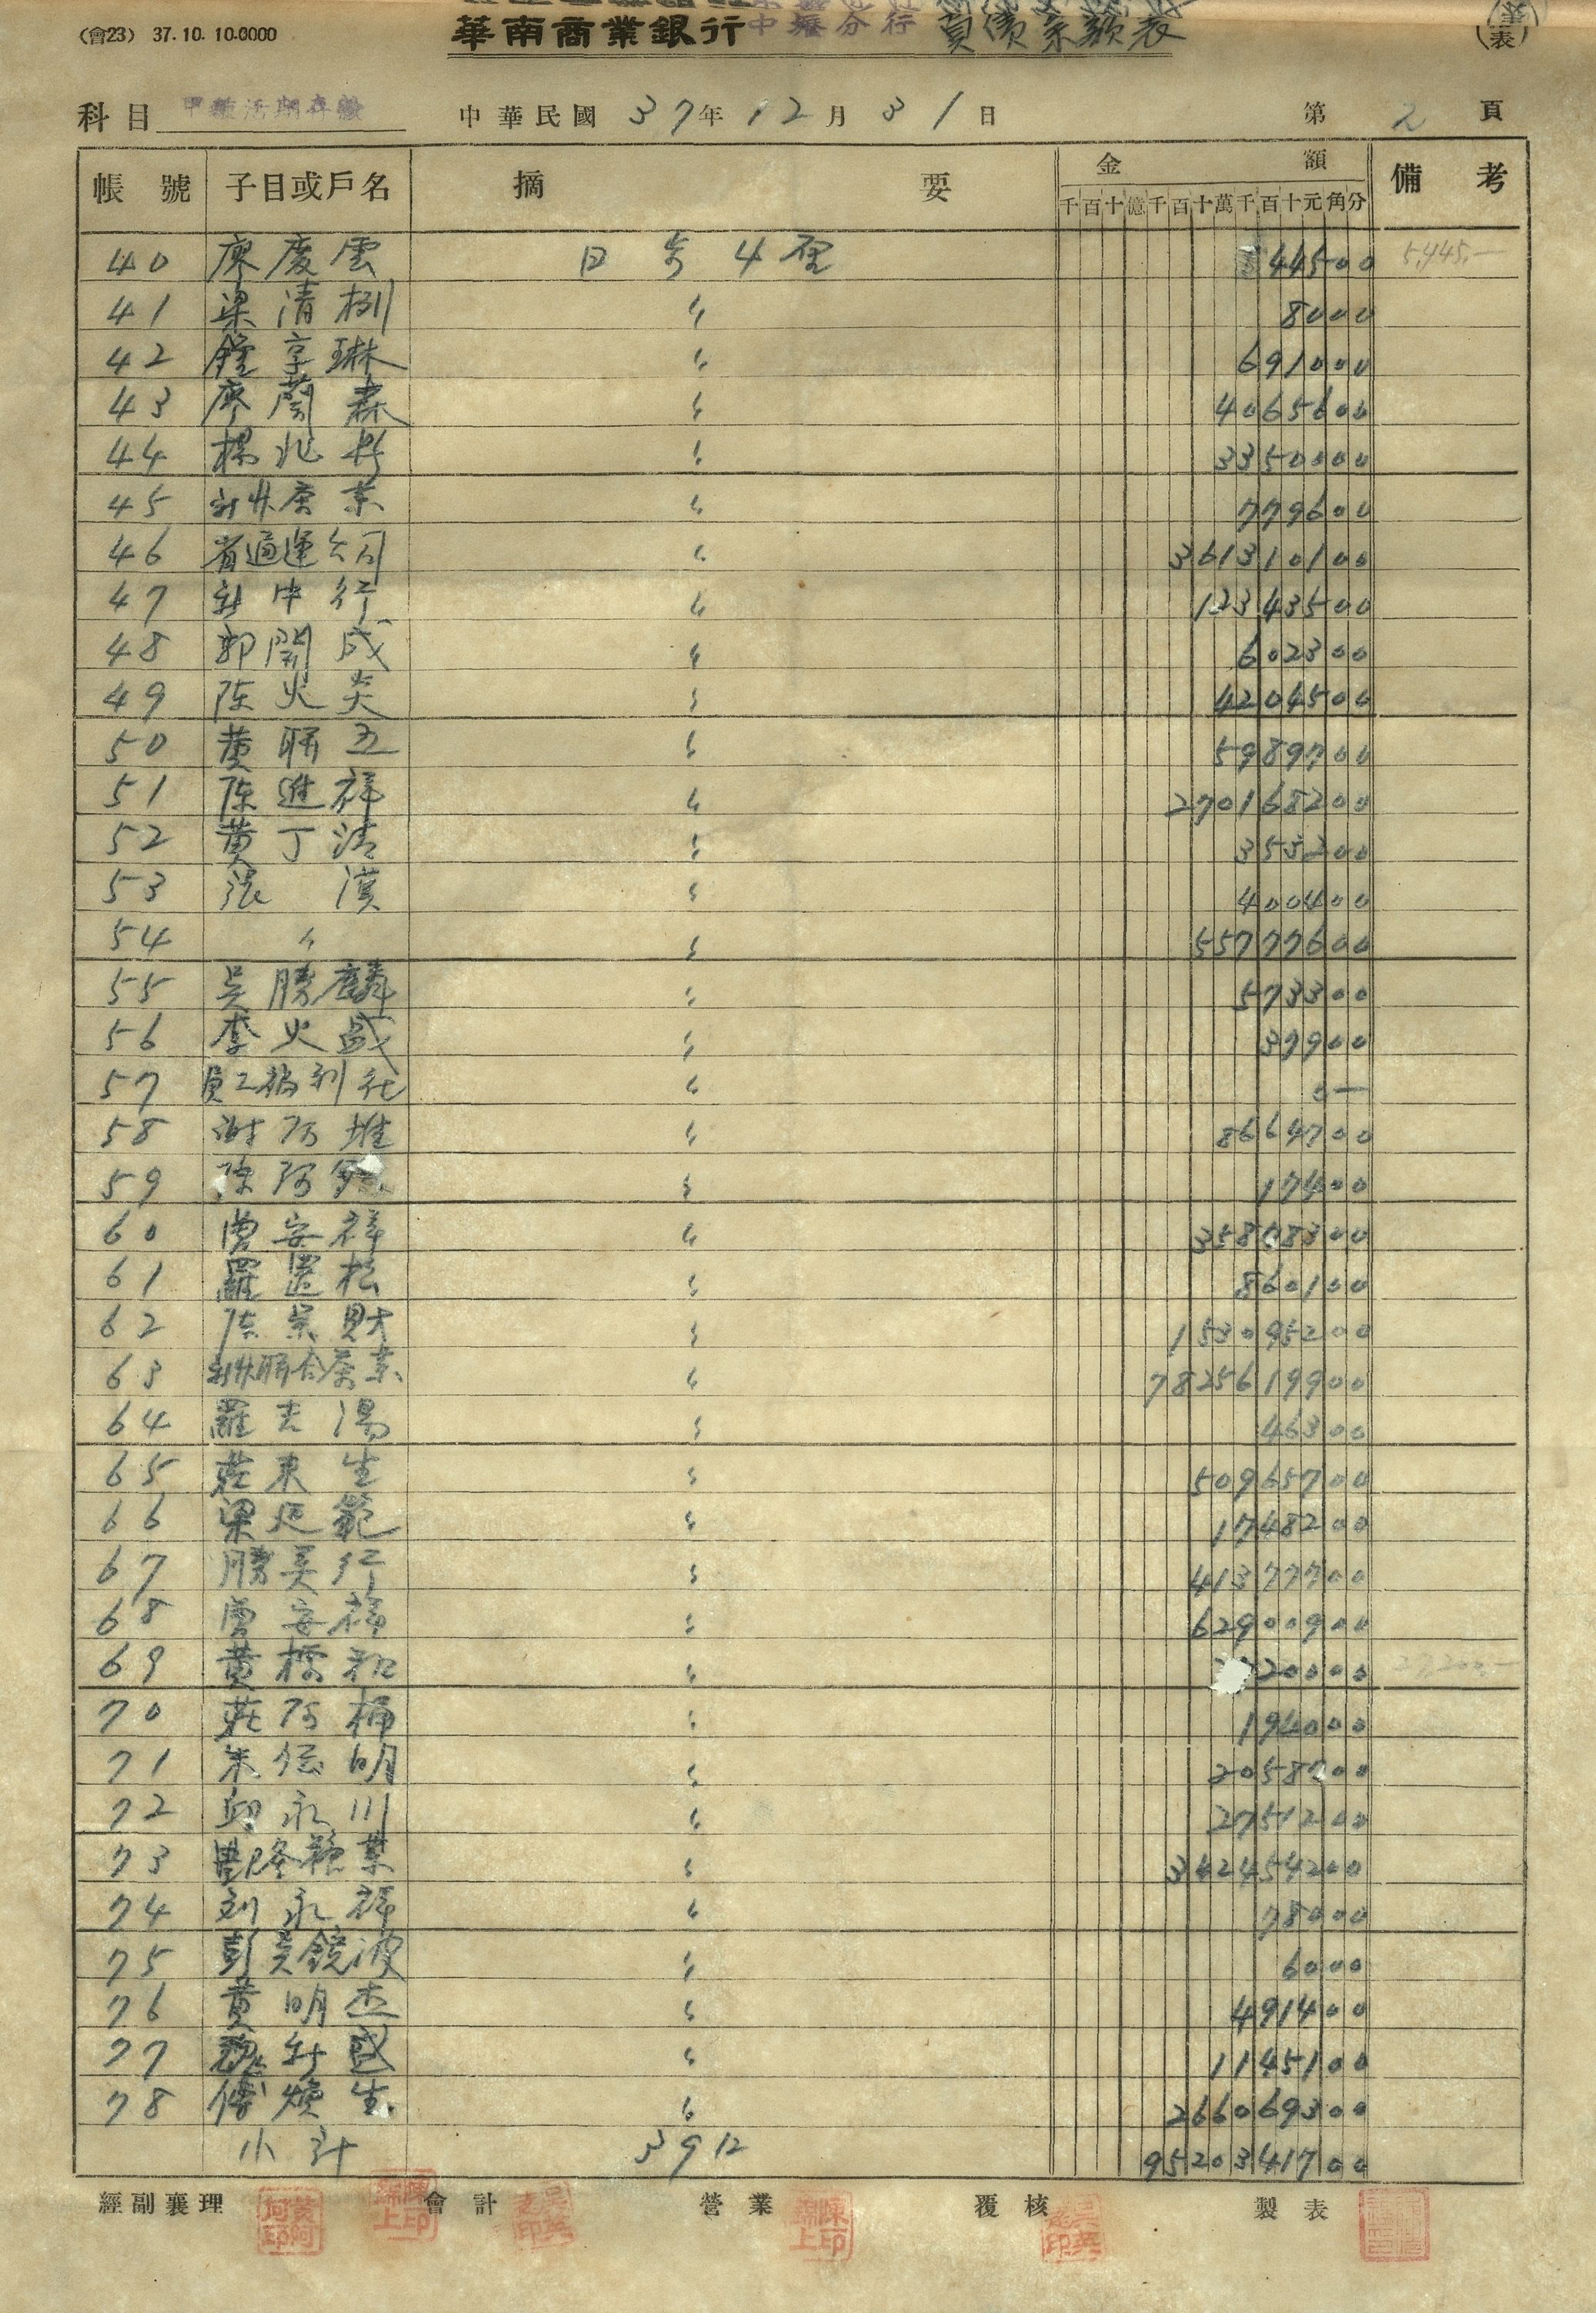 (會23) 37.10.10.0000 華南商業銀行中壢分行 負債余額表
業表
科目 甲種活期存款 中華民國 37年 12月 31日 第 2 頁
帳號 子目或戶名 摘要 金額 備考
千百十億千百十萬千百十元角分
40 廖慶雲 日步4厘 544500 5,445.—
41 梁清 〃 8000
42 鍾享琳 〃 691000
43 廖蘭森 〃 4065600
44 楊兆 〃 3350000
45 新竹茶業 〃 779600
46 省通運公司 〃 361310100
47 新中行 〃 12343500
48 郭開成 〃 602300
49 陈火炎 〃 4204500
50 黃聯五 〃 5989700
51 陈進祥 〃 270168200
52 黃丁清 〃 353200
53 張漢 〃 400400
54 〃 〃 55777600
55 吳勝麟 〃 573300
56 李火盛 〃 37900
57 員工福利社 〃 0—
58 謝阿堆 〃 8664700
59 陈阿 〃 17400
60 曾安祥 〃 35878300
61 羅運松 〃 860100
62 陈業財 〃 153095200
63 新竹聯合茶業 〃 7825619900
64 羅吉湯 〃 46300
65 莊東生 〃 50965700
66 梁廷範 〃 1748200
67 勝美行 〃 41377700
68 曾安祥 〃 62900900
69 黃標和 〃 20000 23,200.—
70 莊阿桶 〃 194000
71 朱信明 〃 2058700
72 邱永川 〃 2751200
73 豐隆糖業 〃 342454200
74 刘永祥 〃 78000
75 彭黃鏡波 〃 6000
76 黃明杰 〃 491400
77 魏新盛 〃 1145100
78 傅煥生 〃 266069300
小計 3912 9520341700
經副襄理 會計 營業 覆核 製表